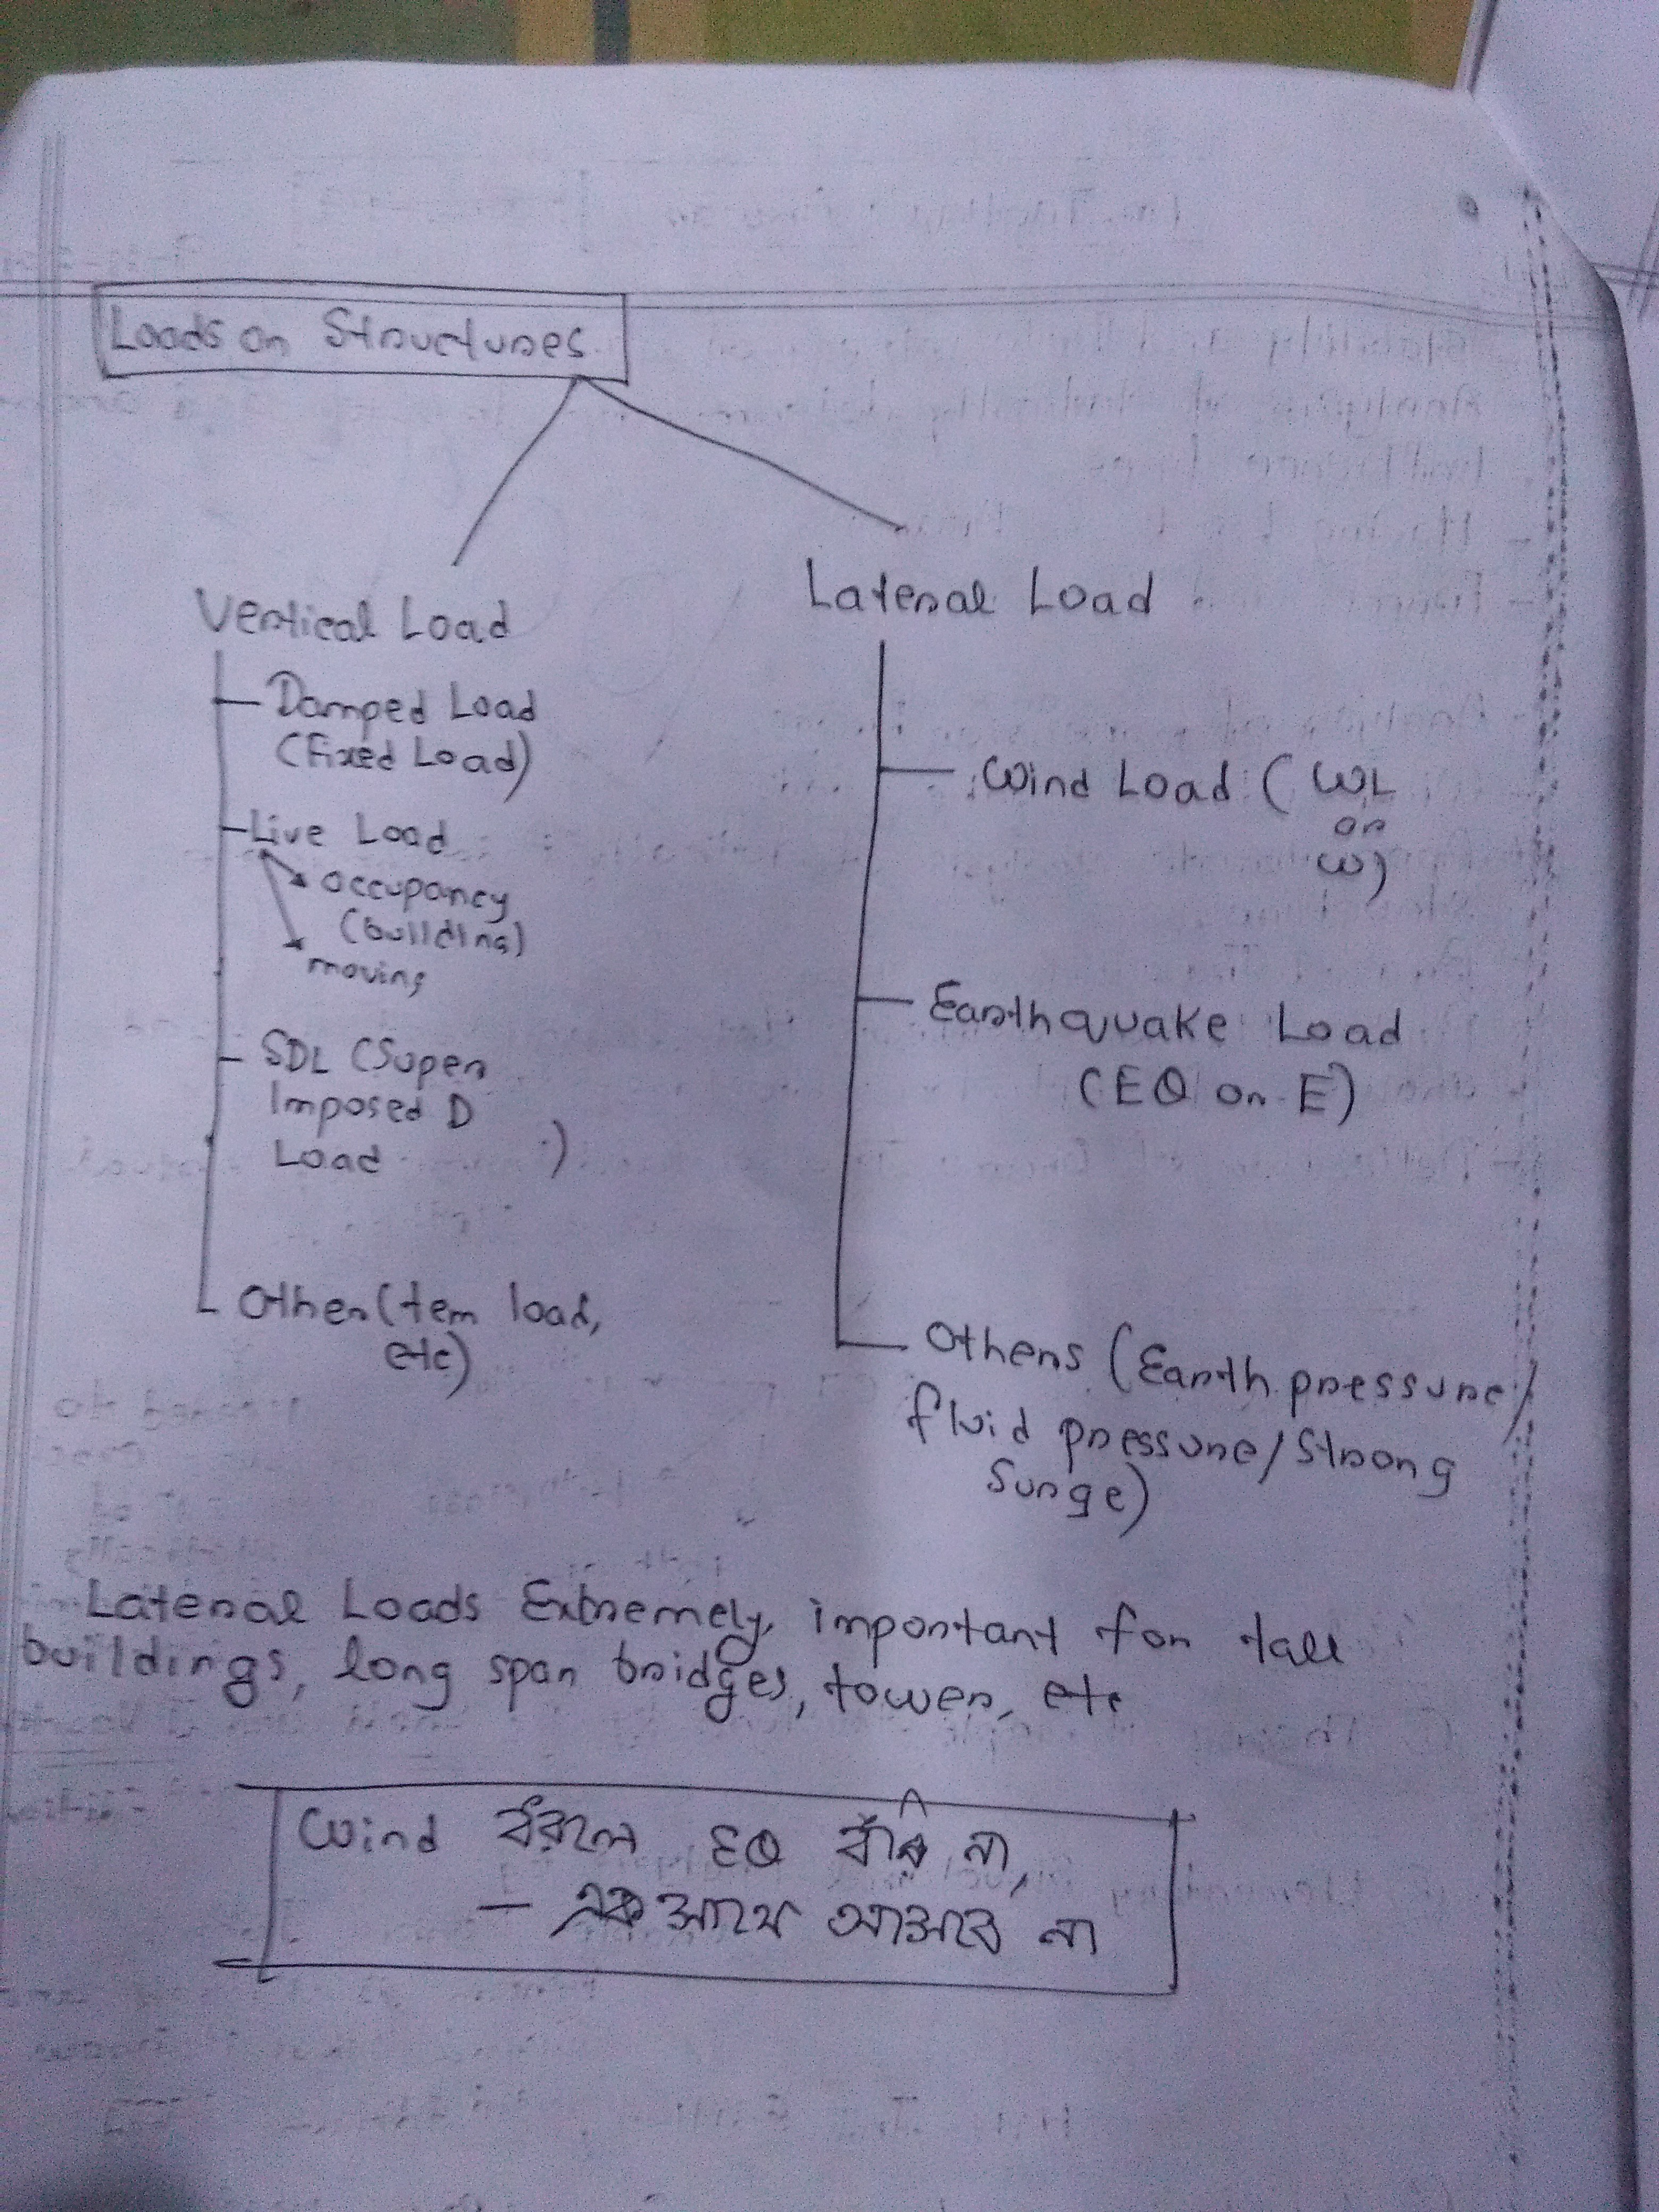 Loads on Structures
Vertical Load
Damped Load
(Fixed Load)
Live Load
occupancy
(building)
moving
SDL (Super
Imposed D
Load )
Other (tem load,
etc)
Lateral Load
Wind Load ( WL
or
W)
Earthquake Load
(EQ or E)
Others (Earth pressure/
fluid pressure/Strong
Surge)
Lateral Loads Extremely, important for tall
buildings, long span bridges, tower, etc
Wind ধরলে EQ ধরি না,
— একসাথে আসবে না